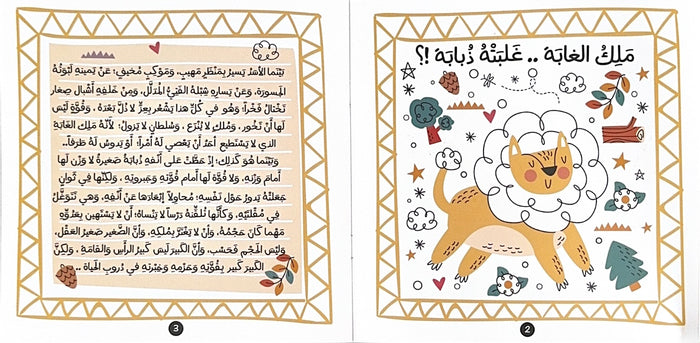 مَلِكُ الغابَةِ .. غَلَبَتْهُ ذُبابَة !؟
2
بَيْنَما الأسَدُ يَسيرُ بِمَنْظَرٍ مَهيبٍ، وَمَوْكِبٍ مُخيفٍ؛ عَنْ يَمينِهِ لَبْوَتُهُ
الجَسورَة، وَعَنْ يَسارِهِ شِبْلُهُ الفَتِيُّ المُدَلَّل، وَمِنْ خَلْفِهِ أَشْبال صِغار
تَخْتالُ فَخْرًا؛ وَهُوَ في كُلِّ هذا يَشْعُر بِعِزٍّ لا ذُلَّ بَعْدَهُ، وَقُوَّةٍ لَيْسَ
لَها أَنْ تَخُور، وَمُلْكٍ لا يُنْزَع، وَسُلْطانٍ لا يَزولُ؛ لأنَّهُ مَلِك الغابَةِ
الذي لا يَسْتَطيع أَحَدٌ أَنْ يَعْصي لَهُ أَمْرًا، أَوْ يَدوسَ لَهُ طَرَفًا..
وَبَيْنَما هُوَ كَذلِكَ؛ إذْ حَطَّتْ عَلى أَنْفِهِ ذُبابَةٌ صَغيرةٌ لا وَزْنَ لَها
أَمامَ وَزْنِهِ، وَلا قُوَّةَ لَها أَمام قُوَّتِهِ وَجَبَروتِهِ، وَلكِنَّها في ثَوانٍ
جَعَلَتْهُ يَدورُ حَوْلَ نَفْسِهِ؛ مُحاوِلاً إبْعادَها عَنْ أَنْفِهِ، وَهي تَتَوَغَّلُ
في مُقْلَتَيْهِ، وَكَأنَّها تُلَقِّنهُ دَرْسًا لا يَنْساهُ؛ أَنْ لا يَسْتَهين بِعَدُوِّهِ
مَهْما كانَ حَجْمُهُ، وَأَنْ لا يَغْتَرَّ بِمُلْكِهِ، وَأَنَّ الصَّغير صَغيرُ العَقْلِ،
وَلَيْسَ الحَجْمِ فَحَسْب، وَأَنَّ الكَبيرَ لَيْسَ كَبيرُ الرَّأْسِ وَالقامَةِ، وَلكِنَّ
الكَبير كَبير بِقُوَّتِهِ وَعَزْمِهِ وَخِبْرَتِهِ في دُروبِ الحَياة ..
3